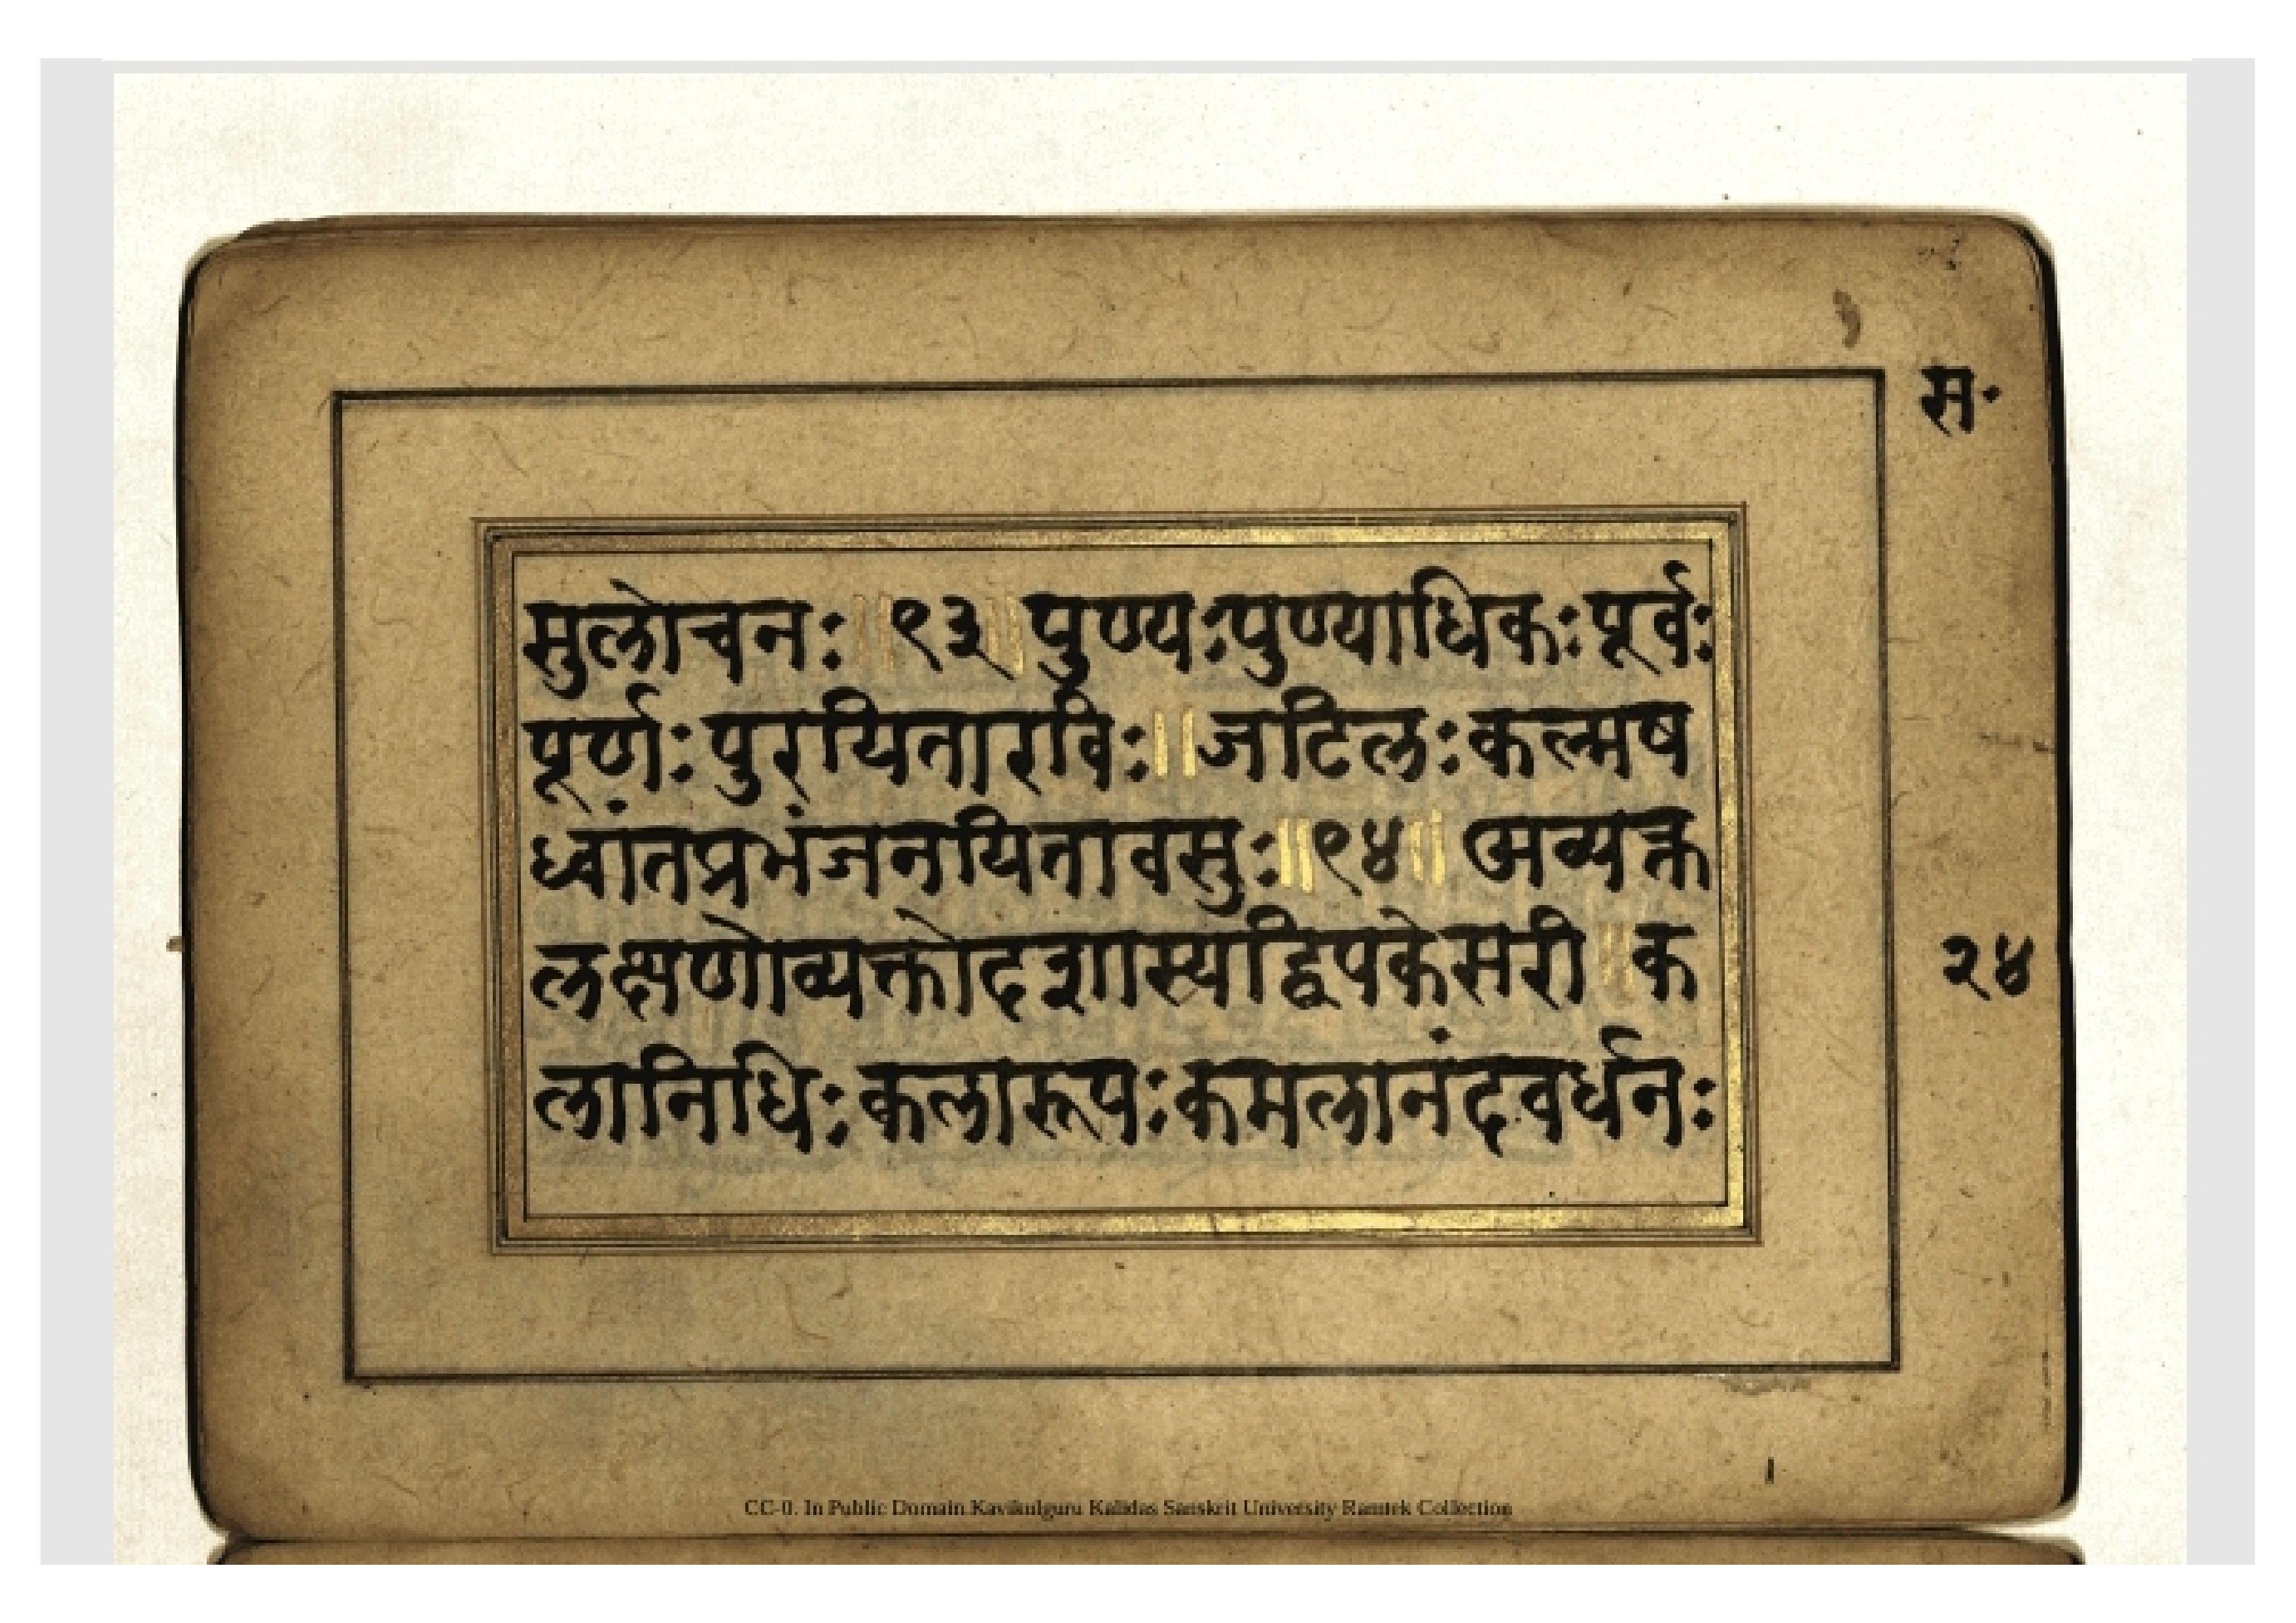 स॰
सुलोचनः ॥९३॥ पुण्यःपुण्याधिकःपूर्वः
पूर्णःपुरयितारविः॥जटिलःकल्मष
ध्वांतप्रभंजनयितावसुः॥९४॥ अव्यक्त
लक्षणोव्यक्तोदशास्यद्विपकेसरी ॥क
लानिधिःकलारूपःकमलानंदवर्धनः
२४
CC-0. In Public Domain Kavikulguru Kalidas Sanskrit University Ramtek Collection